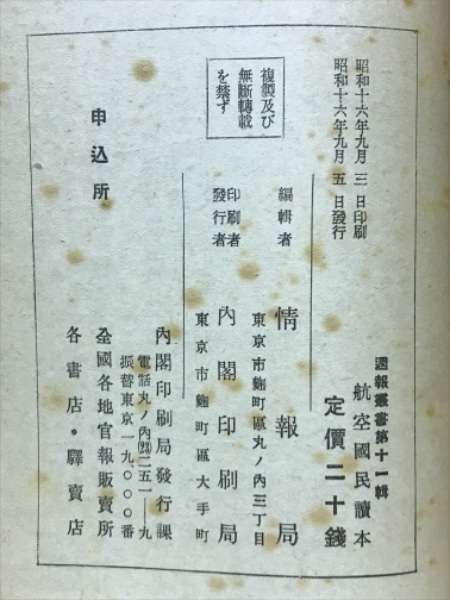 週報叢書第十一輯
航空國民讀本
定價二十錢
昭和十六年九月三日印刷
昭和十六年九月五日發行
編輯者
東京市麹町區丸ノ內三丁目
情報局
印刷者
發行者
內閣印刷局
東京市麹町區大手町
複製及び
無斷轉載
を禁ず
申込所
內閣印刷局發行課
電話丸ノ內(23)二五一一九
振替東京一九、〇〇〇番
全國各地官報販賣所
各書店・驛賣店